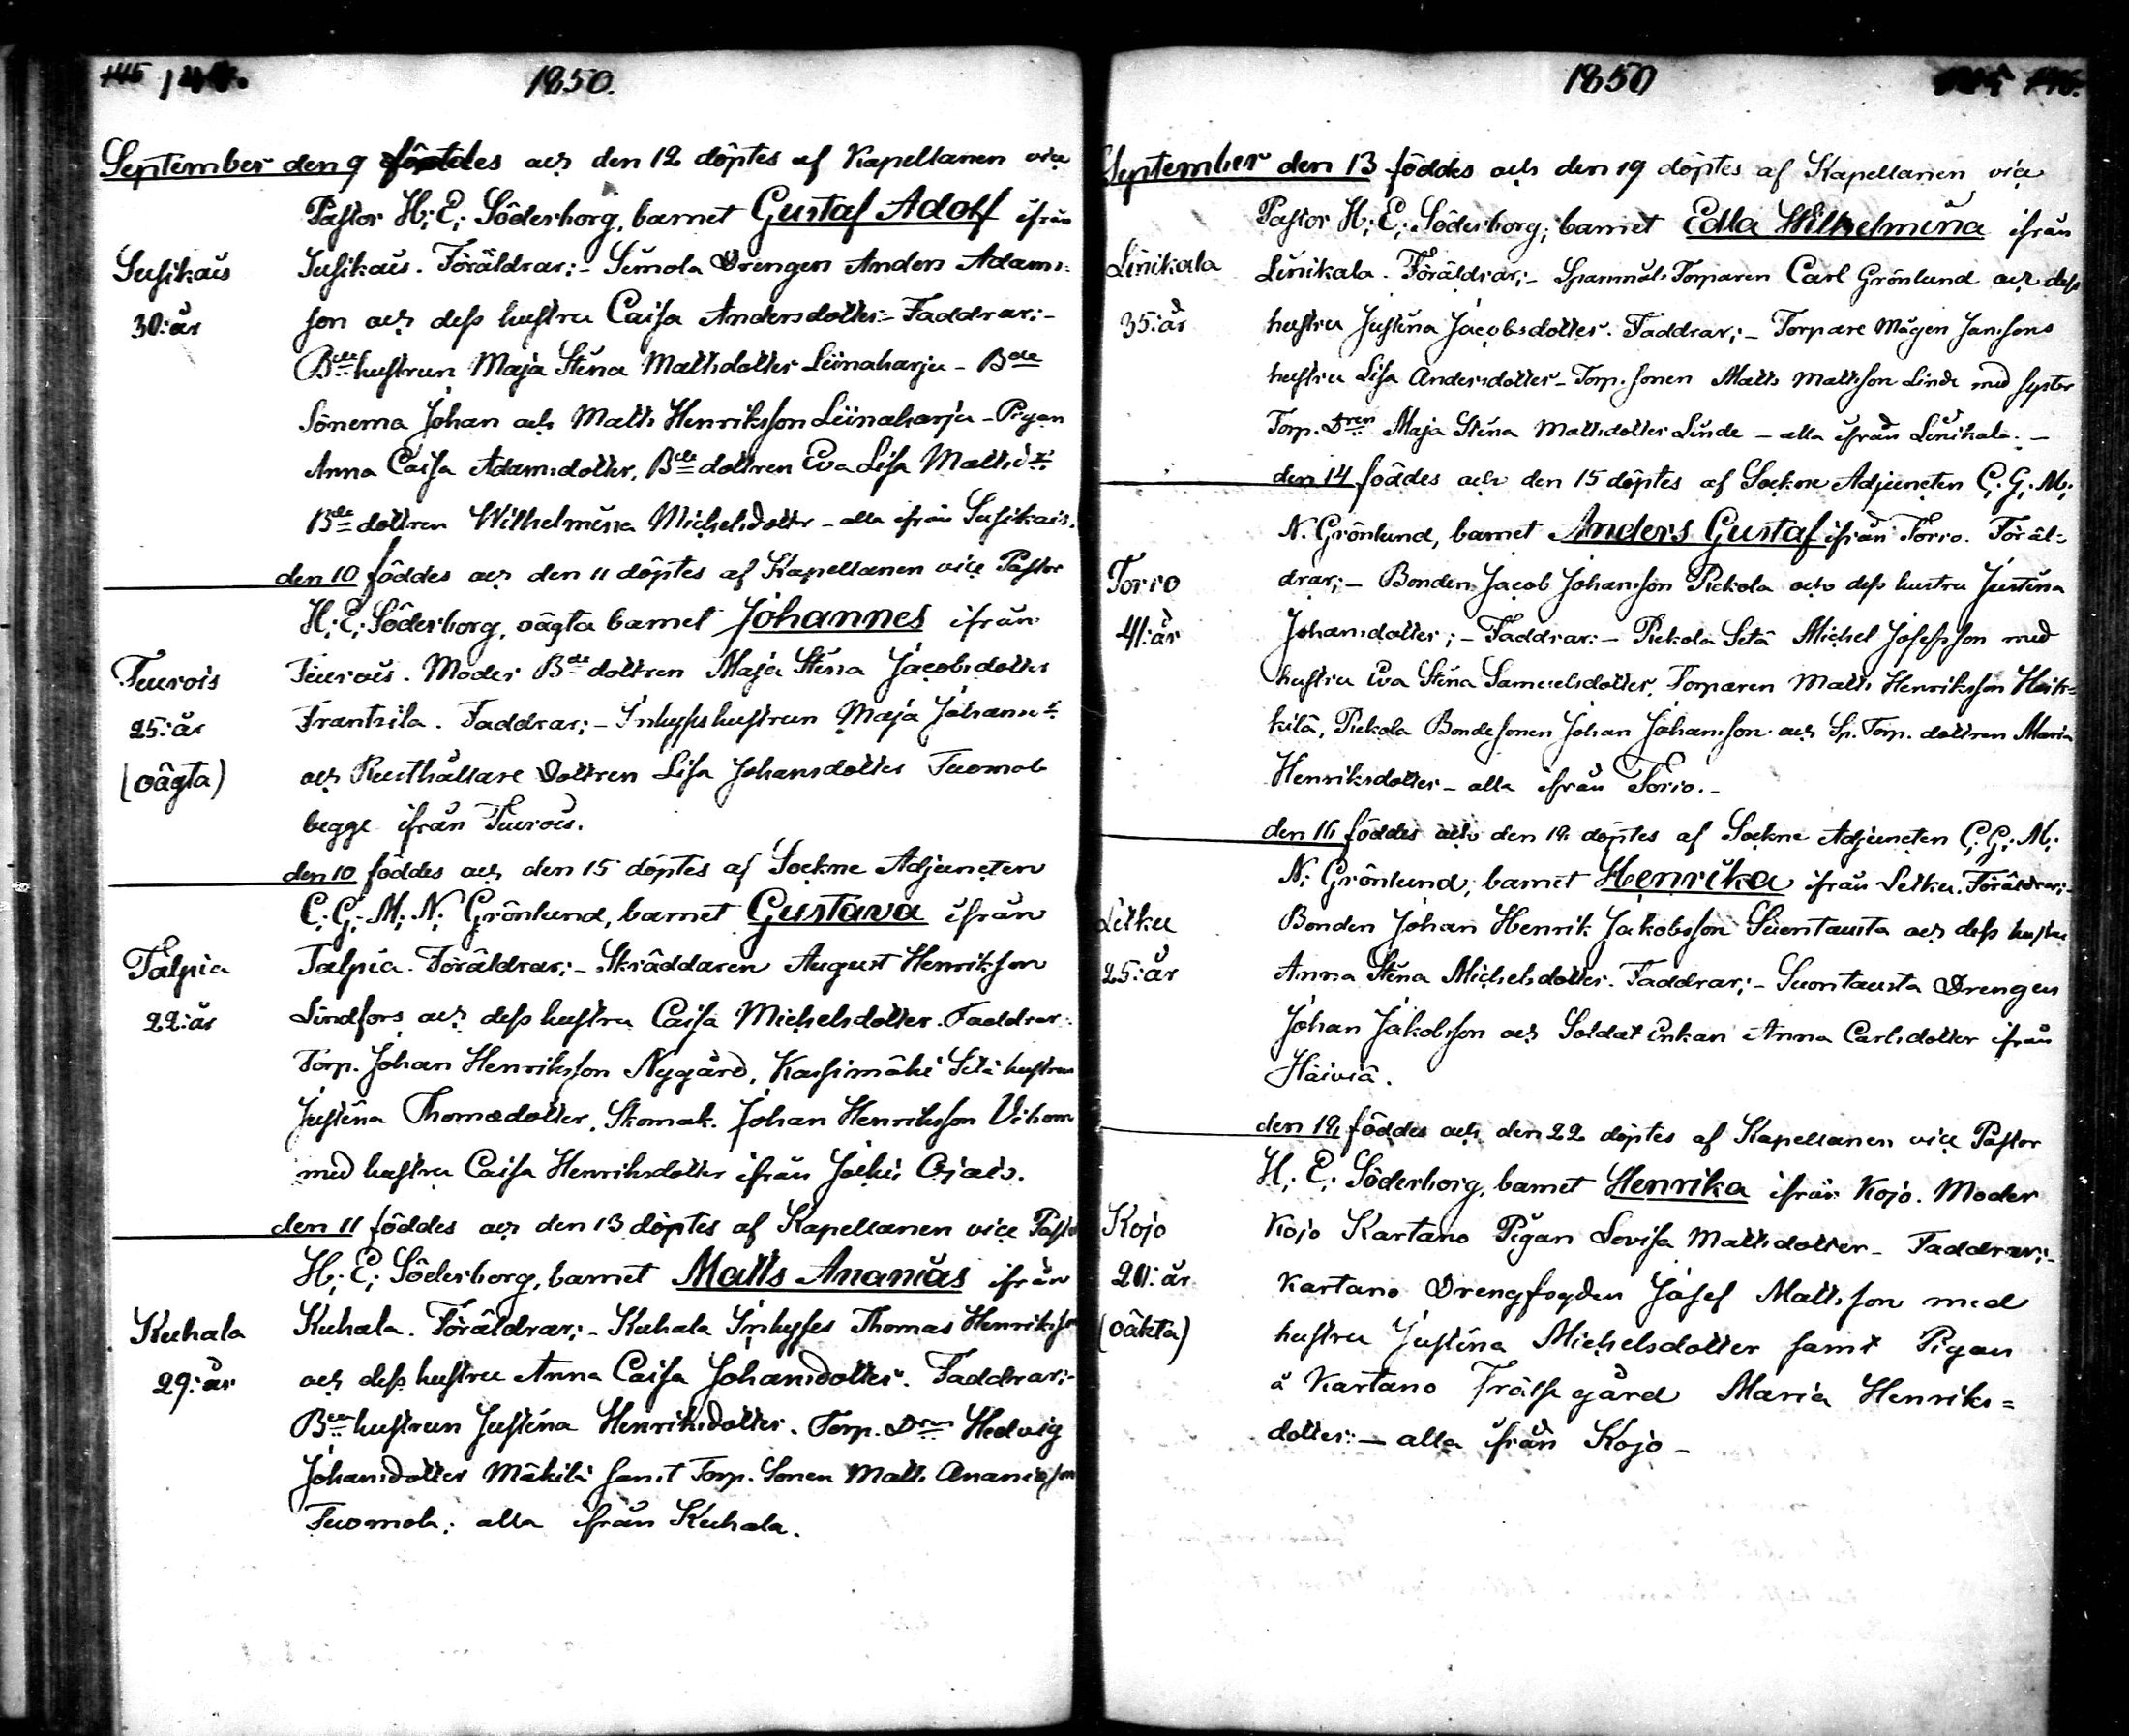 144.
1850.
September den 9 föddes och den 12 döptes af Kapellanen vice
Pastor H; E; Söderborg, barnet Gustaf Adolf ifrån
Susikais
Susikais. Föräldrar;- Simola Drengen Anders Adams-
30:år
son och dess hustru Caisa Andersdotter:- Faddrar:-
Bde hustrun Maja Stina Mattsdotter Liinaharju - Bde
Sönerna Johan och Matts Henriksson Liinaharju - Pigan
Anna Caisa Adamsdotter, Bde dottren Eva Lisa Mattsdr
Bde dottren Wilhelmina Michelsdotter - alla ifrån Susikais.
den 10 föddes och den 11 döptes af Kapellanen vice Pastor
H; E; Söderborg, oägta barnet Johannes ifrån
Teurois
Teurois. Moder Bde dottren Maja Stina Jacobsdotter
25:år
Frantsila. Faddrar;- Inhyses hustrun Maja Johansdr
(oägta)
och Rusthållare Dottren Lisa Johansdotter Tuomola
begge ifrån Teurois.
den 10 föddes och den 15 döptes af Sockne Adjuncten
C; G; M; N; Grönlund, barnet Gustava ifrån
Talpia
Talpia. Föräldrar;- Skräddaren August Henriksson
22:år
Lindfors och dess hustru Caisa Michelsdotter. Faddrar:
Torp. Johan Henriksson Nygård, Kassimäki Sitä hustrun
Justina Thomædotter, Skomak. Johan Henriksson Vihom
med hustru Caisa Henriksdotter ifrån Jockis Ojais.
den 11 föddes och den 13 döptes af Kapellanen vice Pastor
H; E; Söderborg, barnet Matts Ananias ifrån
Kuhala
Kuhala. Föräldrar;- Kuhala Inhyses Thomas Henriksson
29:år
och dess hustru Anna Caisa Johansdotter. Faddrar;-
Bde hustrun Justina Henriksdotter. Torp. Dren Hedvig
Johansdotter Mäkilä samt Torp. Sonen Matts Ananiasson
Tuomola; alla ifrån Kuhala.
1850
September den 13 föddes och den 19 döptes af Kapellanen vice
Pastor H; E; Söderborg; barnet Edla Wilhelmina ifrån
Linikala
Linikala. Föräldrar;- Spannmåls Torparen Carl Grönlund och dess
35:år
hustru Justina Jacobsdotter. Faddrar;- Torpare Mågen Janssons
hustru Lisa Andersdotter - Torp. sonen Matts Mattsson Linde med syster
Torp. Dren Maja Stina Mattsdotter Linde - alla ifrån Linikala. -
den 14 föddes och den 15 döptes af Sockne Adjuncten C; G; M;
N. Grönlund, barnet Anders Gustaf ifrån Torro. Föräl-
Torro
drar;- Bonden Jacob Johansson Piekola och dess hustru Justina
41:år
Johansdotter;- Faddrar:- Piekola Sitä Michel Josefsson med
hustru Eva Stina Samuelsdotter, Torparen Matts Henriksson Heik-
kilä, Piekola Bondesonen Johan Johansson och Sp. Torp. dottren Maria
Henriksdotter - alla ifrån Torro.-
den 16 föddes och den 18 döptes af Sockne Adjuncten C; G; M;
N; Grönlund; barnet Henrika ifrån Letku. Föräldrar;-
Letku
Bonden Johan Henrik Jakobsson Suontausta och dess hustru
25:år
Anna Stina Michelsdotter. Faddrar;- Suontausta Drengen
Johan Jakobsson och Soldat Enkan Anna Carlsdotter ifrån
Häiviä.
den 18 föddes och den 22 döptes af Kapellanen vice Pastor
H; E; Söderborg, barnet Henrika ifrån Kojo. Moder
Kojo
Kojo Kartano Pigan Lovisa Mattsdotter - Faddrar;-
20:år
Kartano Drengfogden Josef Mattsson med
(oäkta)
hustru Justina Michelsdotter samt Pigan
å Kartano Frälse gård Maria Henriks=
dotter:- alla ifrån Kojo -